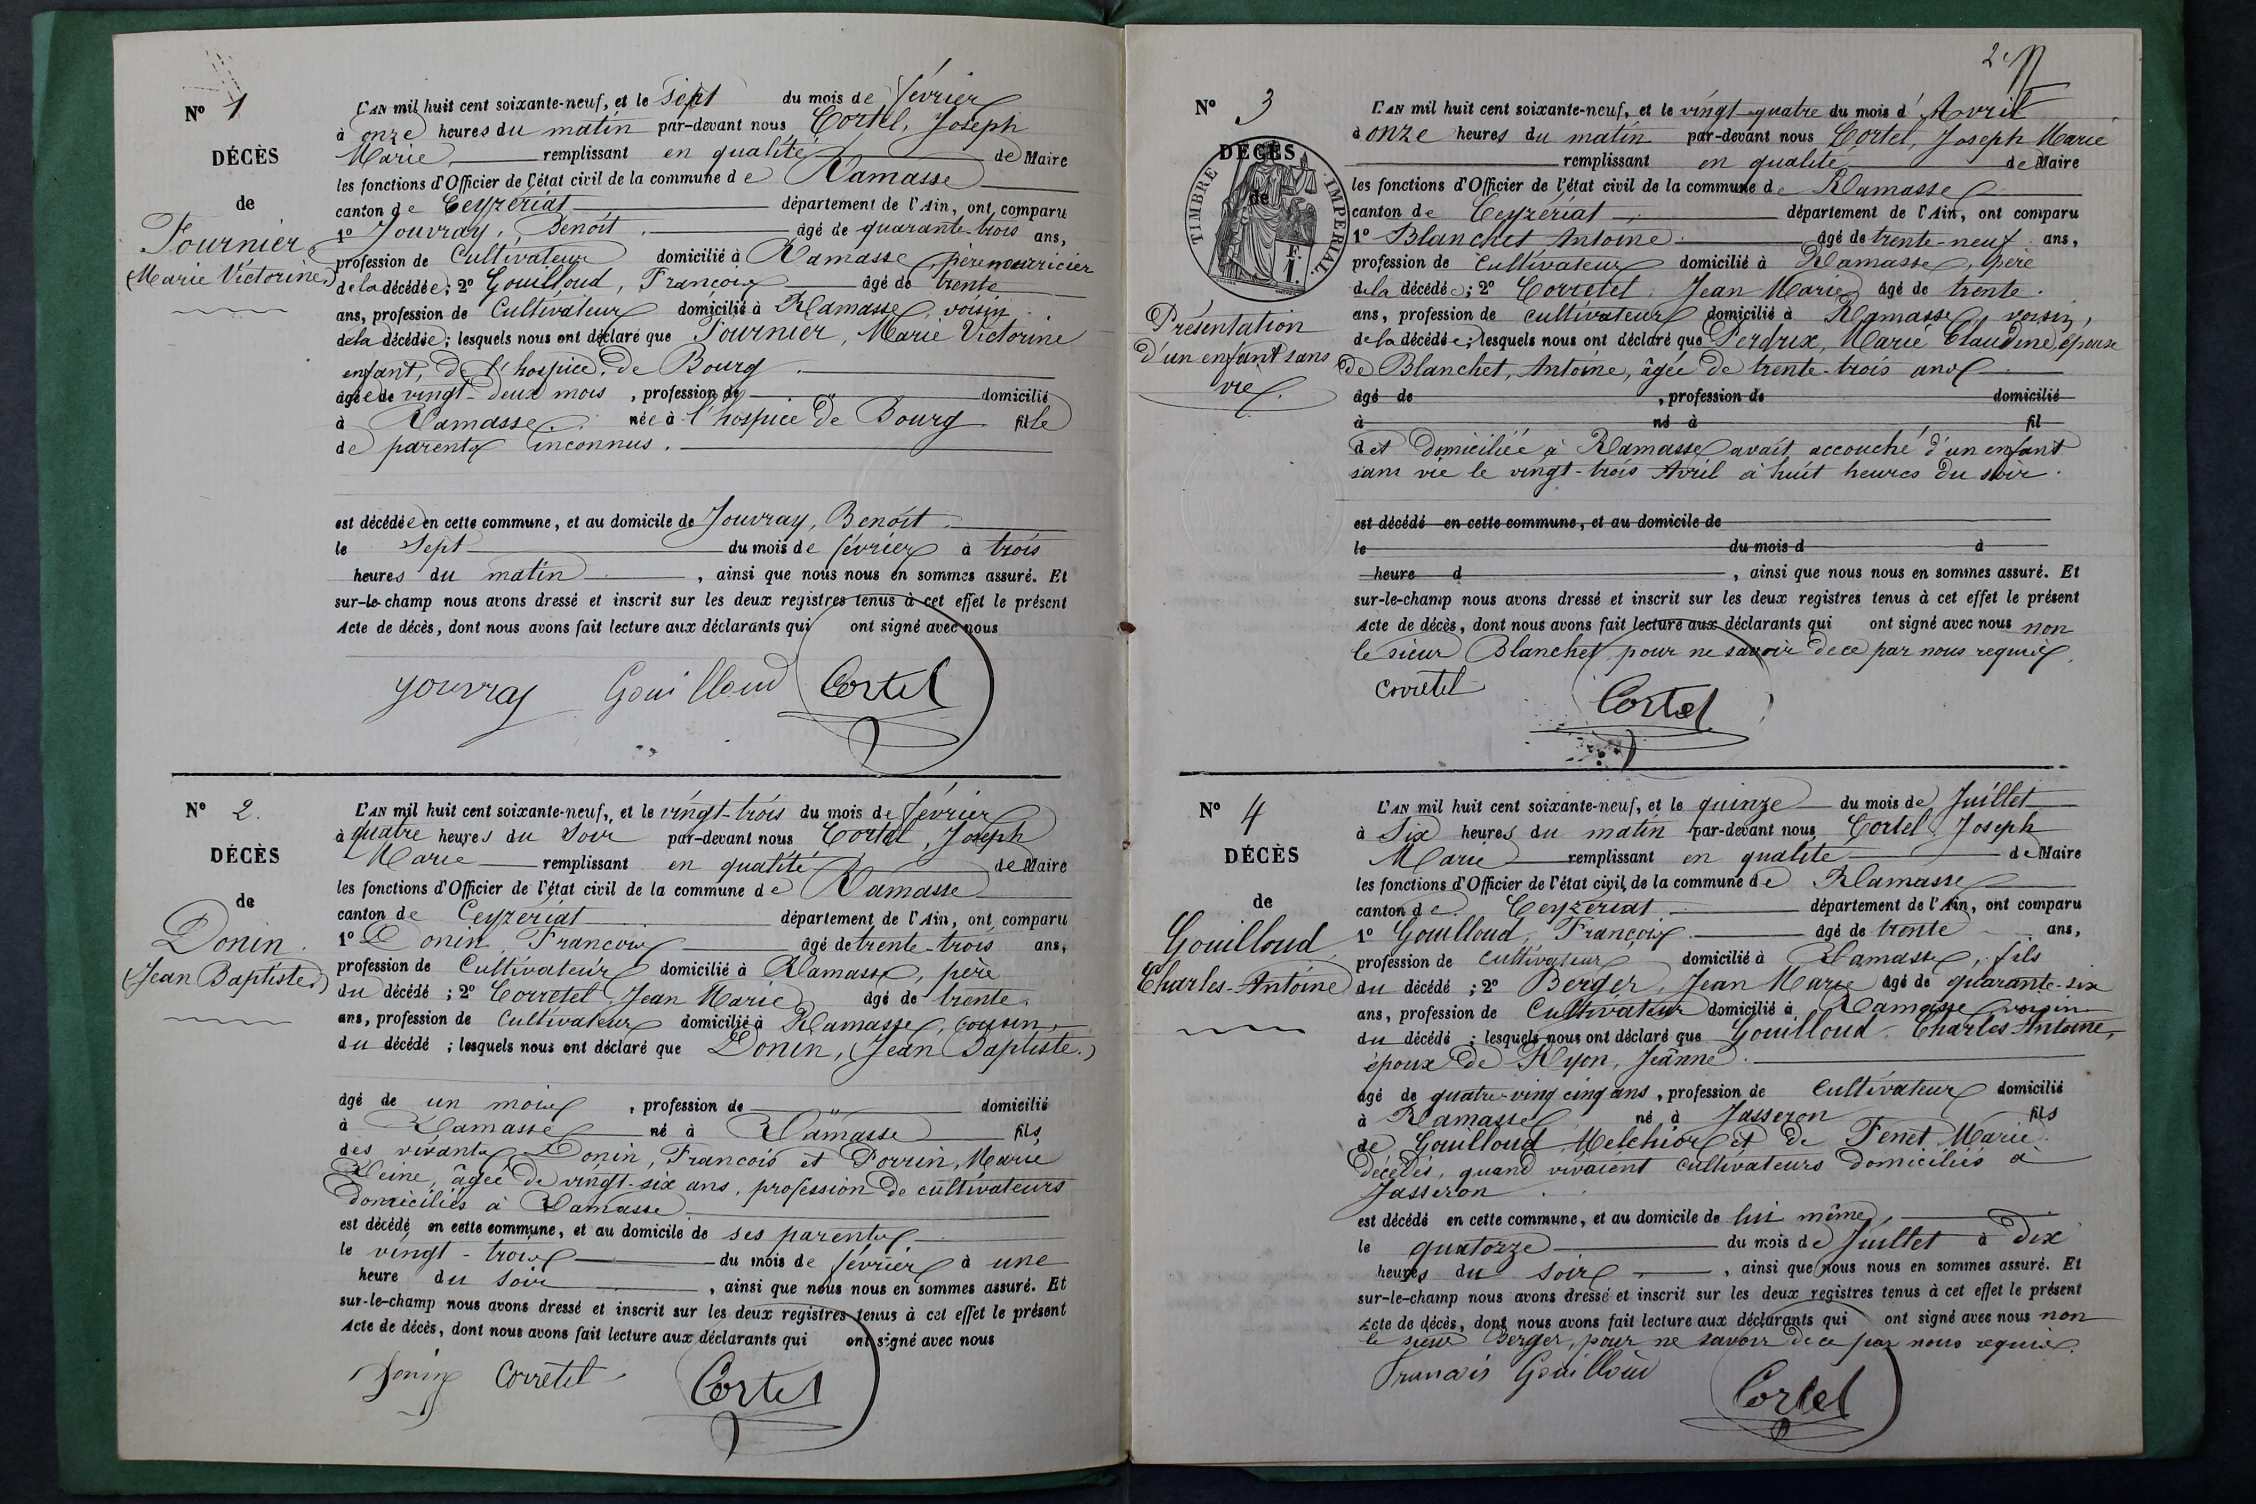 N° 1
DÉCÈS
de
Fournier
(Marie Victorine)
L'AN mil huit cent soixante-neuf, et le sept du mois de février
à onze heures du matin par-devant nous Cortel, Joseph
Marie remplissant en qualité de Maire
les fonctions d'Officier de l'état civil de la commune de Ramasse
canton de Ceyzériat département de l'Ain, ont comparu
1° Jouvray, Benoît âgé de quarante-trois ans,
profession de Cultivateur domicilié à Ramasse, père nourricier
de la décédée; 2° Gouilloud, François âgé de trente
ans, profession de Cultivateur domicilié à Ramasse, voisin
de la décédée; lesquels nous ont déclaré que Fournier, Marie Victorine
enfant, de l'hospice de Bourg
âgée de vingt-deux mois, profession de " domicilié
à Ramasse. née à l'hospice de Bourg fille
de parents inconnus.
est décédée en cette commune, et au domicile de Jouvray, Benoît
le sept du mois de février à trois
heures du matin, ainsi que nous nous en sommes assuré. Et
sur-le-champ nous avons dressé et inscrit sur les deux registres tenus à cet effet le présent
Acte de décès, dont nous avons fait lecture aux déclarants qui ont signé avec nous
Jouvray Gouilloud Cortel
N° 2.
DÉCÈS
de
Donin
(Jean Baptiste)
L'AN mil huit cent soixante-neuf, et le vingt-trois du mois de février
à quatre heures du soir par-devant nous Cortel, Joseph
Marie remplissant en qualité de Maire
les fonctions d'Officier de l'état civil de la commune de Ramasse
canton de Ceyzériat département de l'Ain, ont comparu
1° Donin, François âgé de trente-trois ans,
profession de Cultivateur domicilié à Ramasse, père
du décédé; 2° Corretel, Jean Marie âgé de trente
ans, profession de Cultivateur domicilié à Ramasse, cousin
du décédé; lesquels nous ont déclaré que Donin, (Jean Baptiste.)
âgé de un mois, profession de " domicilié
à Ramasse né à Ramasse fils
des vivants Donin, François et Porrin, Marie
Reine, âgée de vingt-six ans, profession de cultivateurs
domiciliés à Ramasse
est décédé en cette commune, et au domicile de ses parents
le vingt-trois du mois de février à une
heure du soir, ainsi que nous nous en sommes assuré. Et
sur-le-champ nous avons dressé et inscrit sur les deux registres tenus à cet effet le présent
Acte de décès, dont nous avons fait lecture aux déclarants qui ont signé avec nous
Donin Corretel Cortel
2
N° 3
DÉCÈS
de
TIMBRE IMPÉRIAL
Présentation
d'un enfant sans
vie.
L'AN mil huit cent soixante-neuf, et le vingt-quatre du mois d'Avril
à onze heures du matin par-devant nous Cortel, Joseph Marie
remplissant en qualité de Maire
les fonctions d'Officier de l'état civil de la commune de Ramasse
canton de Ceyzériat département de l'Ain, ont comparu
1° Blanchet Antoine âgé de trente-neuf ans,
profession de cultivateur domicilié à Ramasse, père
de la décédée; 2° Corretel, Jean Marie âgé de trente
ans, profession de cultivateur domicilié à Ramasse, voisin,
de la décédée; lesquels nous ont déclaré que Perdrix, Marie Claudine, épouse
de Blanchet, Antoine, âgée de trente-trois ans
âgé de , profession de domicilié
à né à fil
det domiciliée à Ramasse avait accouché d'un enfant
sans vie le vingt-trois Avril à huit heures du soir.
est décédé en cette commune, et au domicile de
le du mois d à
heure d , ainsi que nous nous en sommes assuré. Et
sur-le-champ nous avons dressé et inscrit sur les deux registres tenus à cet effet le présent
Acte de décès, dont nous avons fait lecture aux déclarants qui ont signé avec nous non
le sieur Blanchet pour ne savoir de ce par nous requis.
Corretel Cortel
N° 4
DÉCÈS
de
Gouilloud
Charles-Antoine
L'AN mil huit cent soixante-neuf, et le quinze du mois de Juillet
à Six heures du matin par-devant nous Cortel Joseph
Marie remplissant en qualité de Maire
les fonctions d'Officier de l'état civil de la commune de Ramasse
canton de Ceyzériat département de l'Ain, ont comparu
1° Gouilloud, François âgé de trente ans,
profession de cultivateur domicilié à Ramasse, fils
du décédé; 2° Berger, Jean Marie âgé de quarante-six
ans, profession de Cultivateur domicilié à Ramasse, voisin
du décédé; lesquels nous ont déclaré que Gouilloud. Charles Antoine,
époux de Ryon, Jeanne
âgé de quatre-ving cinq ans, profession de Cultivateur domicilié
à Ramasse né à Jasseron fils
de Gouilloud, Melchior et de Fenet Marie
décédés, quand vivaient cultivateurs domiciliés à
Jasseron
est décédé en cette commune, et au domicile de lui même
le quatorze du mois de Juillet à Dix
heures du soir, ainsi que nous nous en sommes assuré. Et
sur-le-champ nous avons dressé et inscrit sur les deux registres tenus à cet effet le présent
Acte de décès, dont nous avons fait lecture aux déclarants qui ont signé avec nous non
le sieur Berger, pour ne savoir de ce par nous requis.
François Gouilloud Cortel